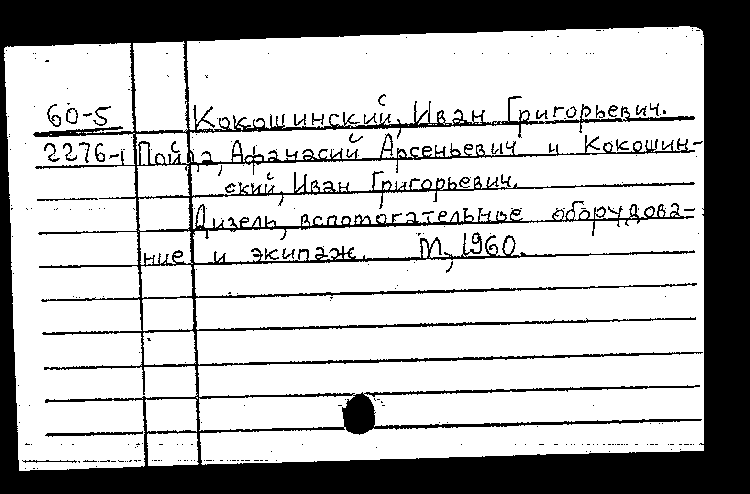 60-5 Кокошинский, Иван Григорьевич.
2276-1 Пойда, Афанасий Арсеньевич и Кокошин-
ский, Иван Григорьевич.
Дизель, вспомогательные оборудова-
ние и экипаж. М., 1960.